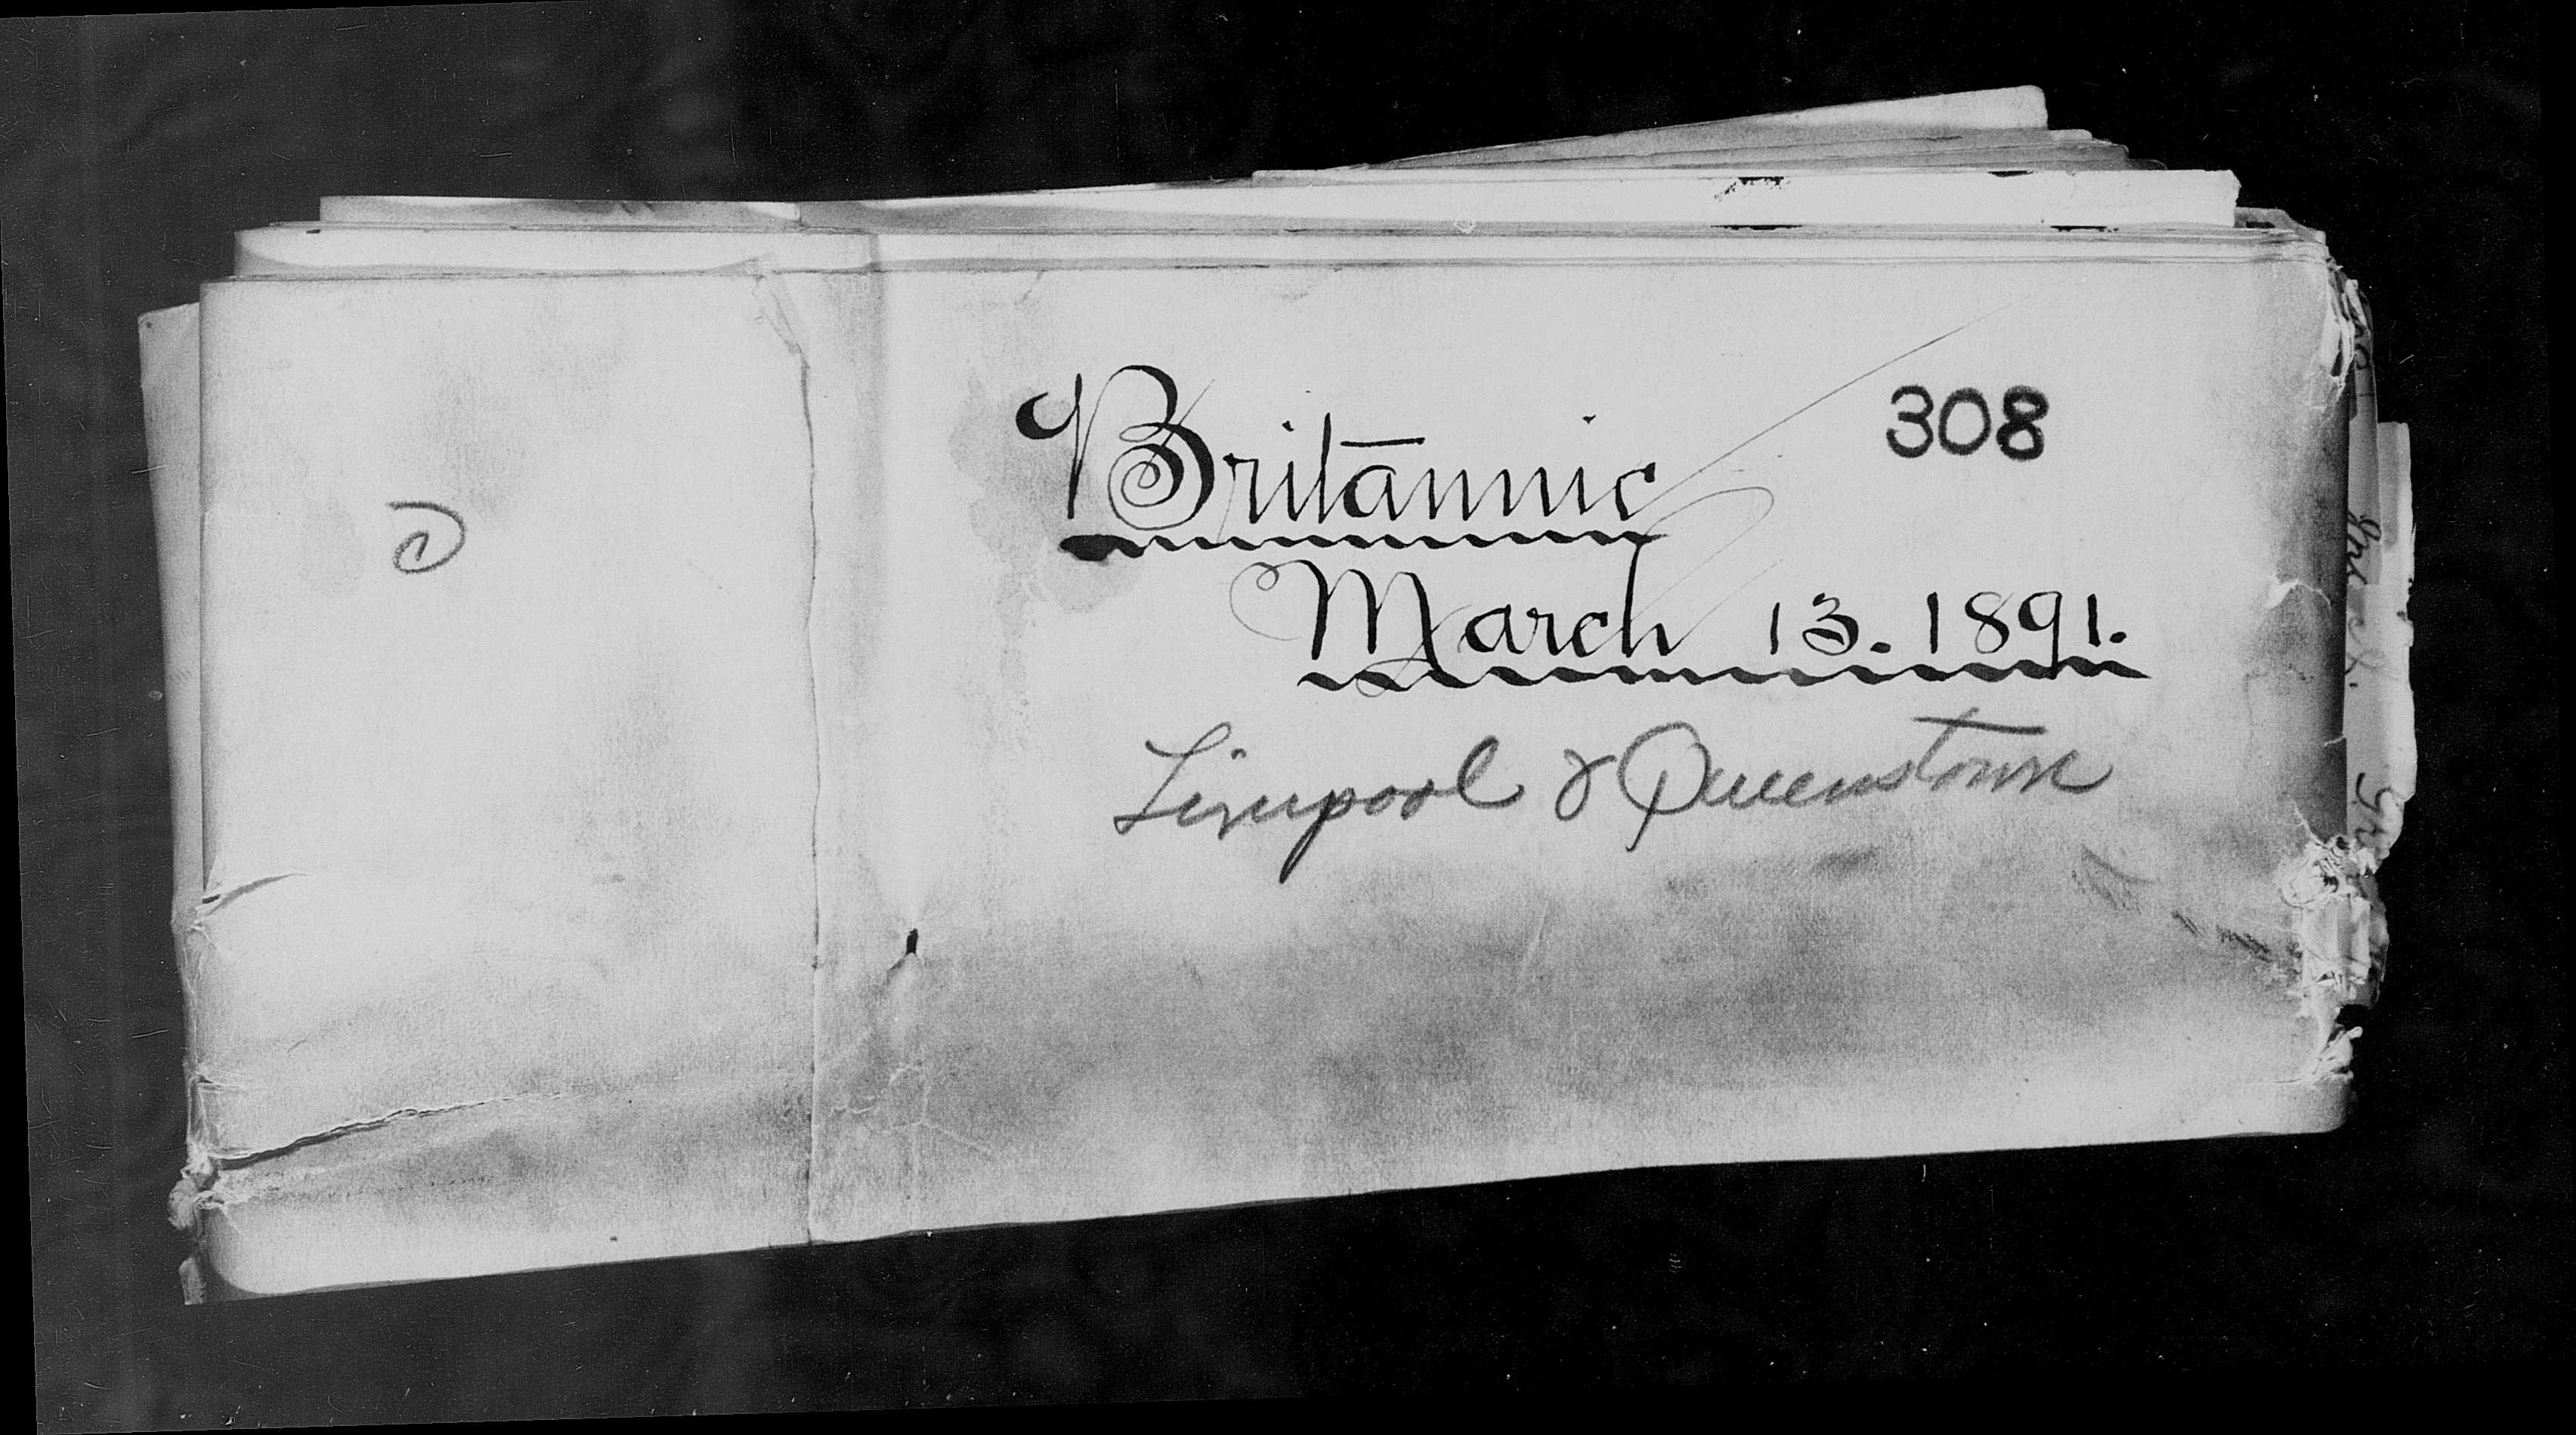 308
Britannic
March 13. 1891.
Liverpool & Queenstown